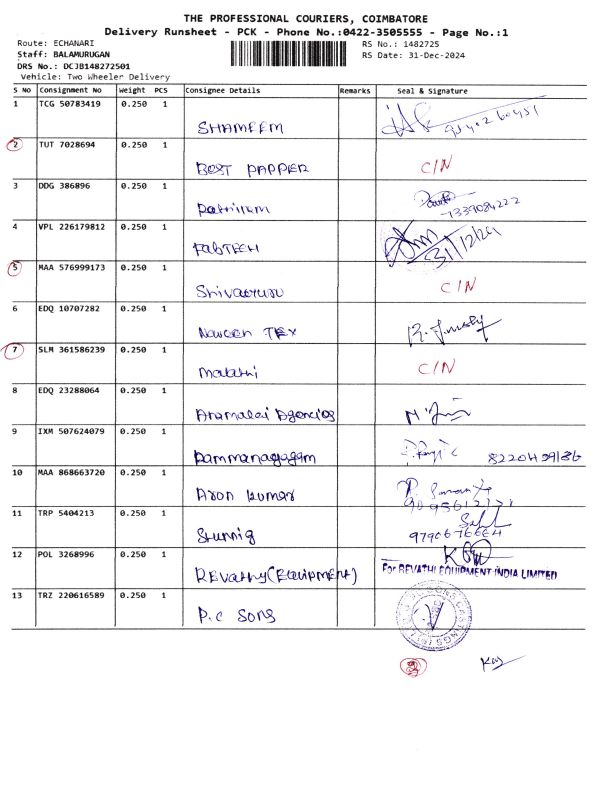 THE PROFESSIONAL COURIERS, COIMBATORE
Delivery Runsheet - PCK - Phone No.:0422-3505555 - Page No.:1
Route: ECHANARI RS No.: 1482725
Staff: BALAMURUGAN RS Date: 31-Dec-2024
DRS No.: DCJB148272501
Vehicle: Two Wheeler Delivery
S No Consignment No Weight PCS Consignee Details Remarks Seal & Signature
1 TCG 50783419 0.250 1 SHAMEEM
2 TUT 7028694 0.250 1 BEST PAPPER C/N
3 DDG 386896 0.250 1
7339084222
4 VPL 226179812 0.250 1 FabTECH 31/12/24
5 MAA 576999173 0.250 1 C/N
6 EDQ 10707282 0.250 1 Naveen TEX
7 SLM 361586239 0.250 1 malathi C/N
8 EDQ 23288064 0.250 1
9 IXM 507624079 0.250 1 8220459186
10 MAA 868663720 0.250 1 Aron kumar
11 TRP 5404213 0.250 1 9790676664
12 POL 3268996 0.250 1 REvathy(Equipment) For REVATHI EQUIPMENT INDIA LIMITED
13 TRZ 220616589 0.250 1 P.C Sons
3